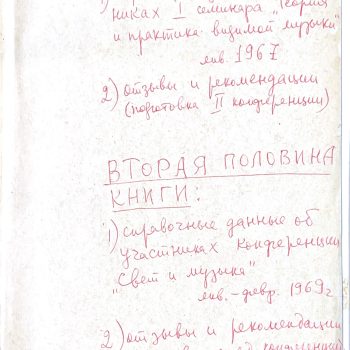 никах I семинара "Теория
и практика видимой музыки"
янв. 1967
2) отзывы и рекомендации
(подготовка II конференции)
ВТОРАЯ ПОЛОВИНА
КНИГИ:
1) справочные данные об
участниках Конференции
"Свет и музыка"
янв. - февр. 1969 г
2) отзывы и рекомендации
конференции